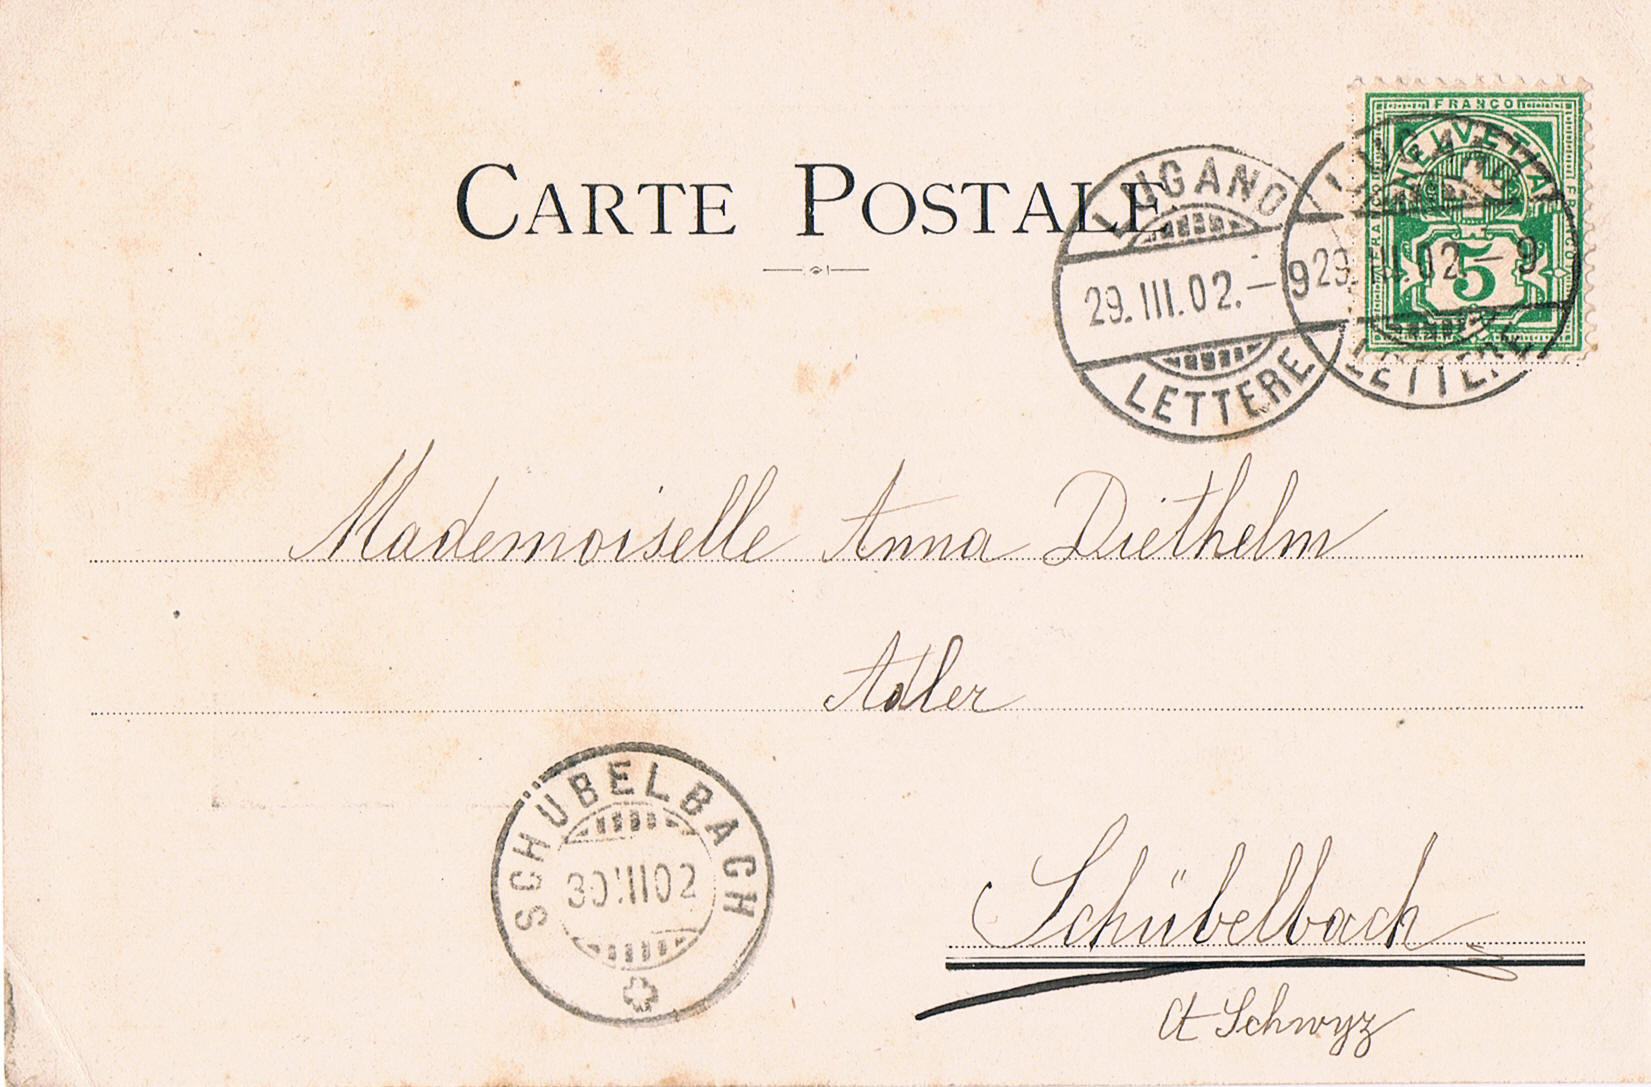 CARTE POSTALE
FRANCO
HELVETIA
FRANCO
FRANCO
5
LUGANO
29.III.02.–9
LETTERE
LUGANO
29.III.02.–9
LETTERE
Mademoiselle Anna Diethelm
Adler
SCHÜBELBACH
30.III02
Schübelbach
Ct Schwyz